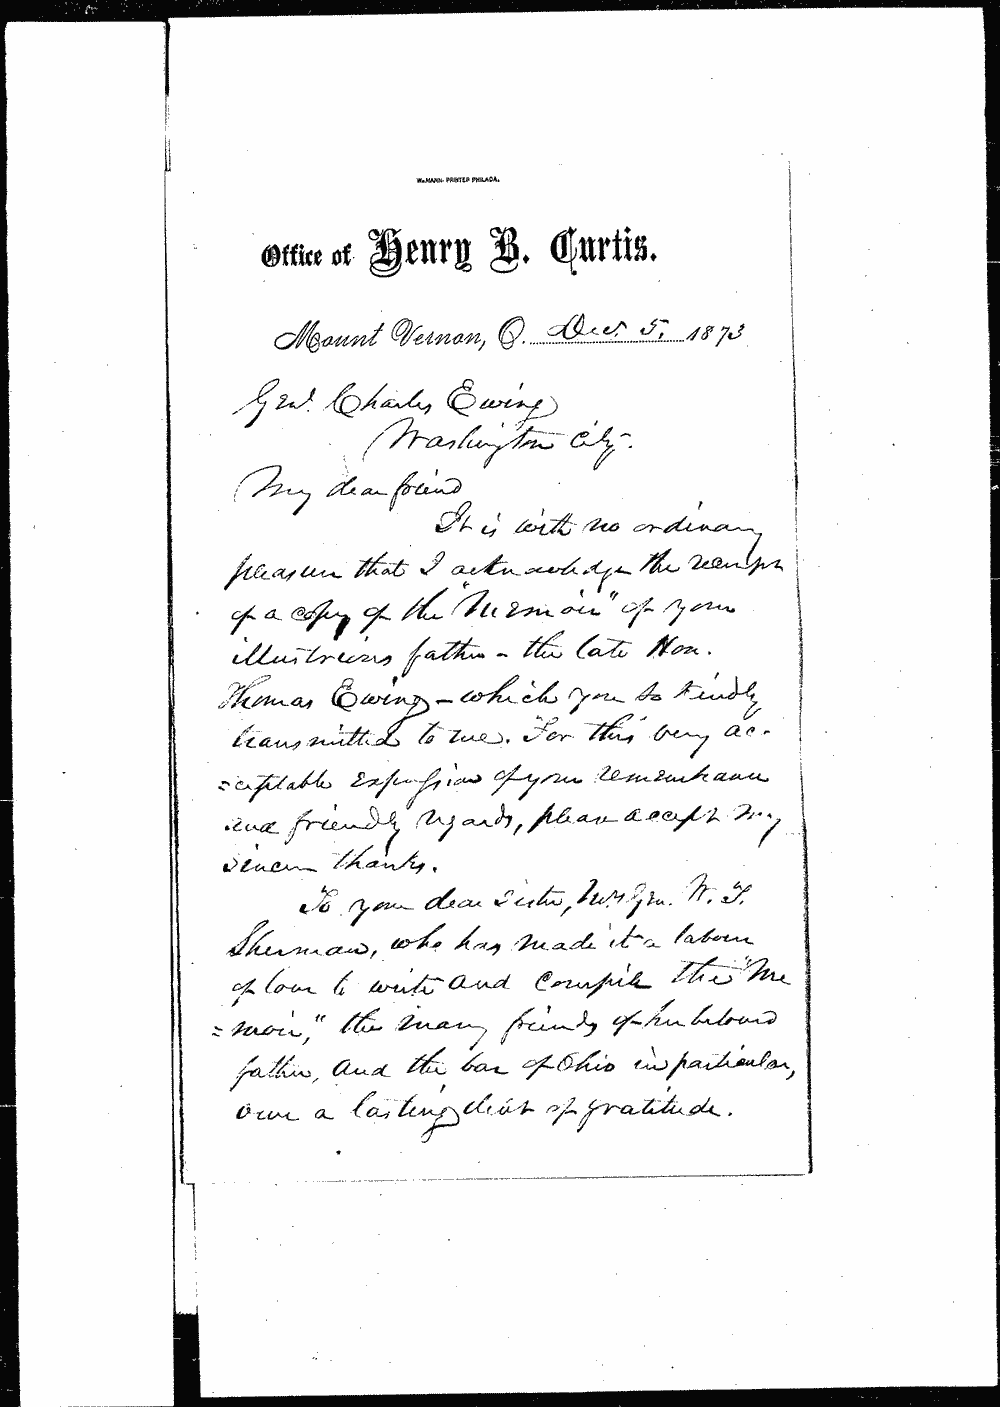 Wm. MANN. PRINTER PHILADA.
Office of Henry B. Curtis.
Mount Vernon, O. Dec. 5. 1873
Genl. Charles Ewing
Washington City.
My dear friend
It is with no ordinary
pleasure that I acknowledge the receipt
of a copy of the "Memoir" of your
illustrious father - the late Hon.
Thomas Ewing - which you so kindly
transmitted to me. For this very ac-
=ceptable expression of your remembrance
and friendly regards, please accept my
sincere thanks.
To your dear sister, Mrs Gen. W. T.
Sherman, who has made it a labour
of love to write and compile the "Me
=moir," the many friends of her beloved
father, and the bar of Ohio in particular,
owe a lasting debt of gratitude.